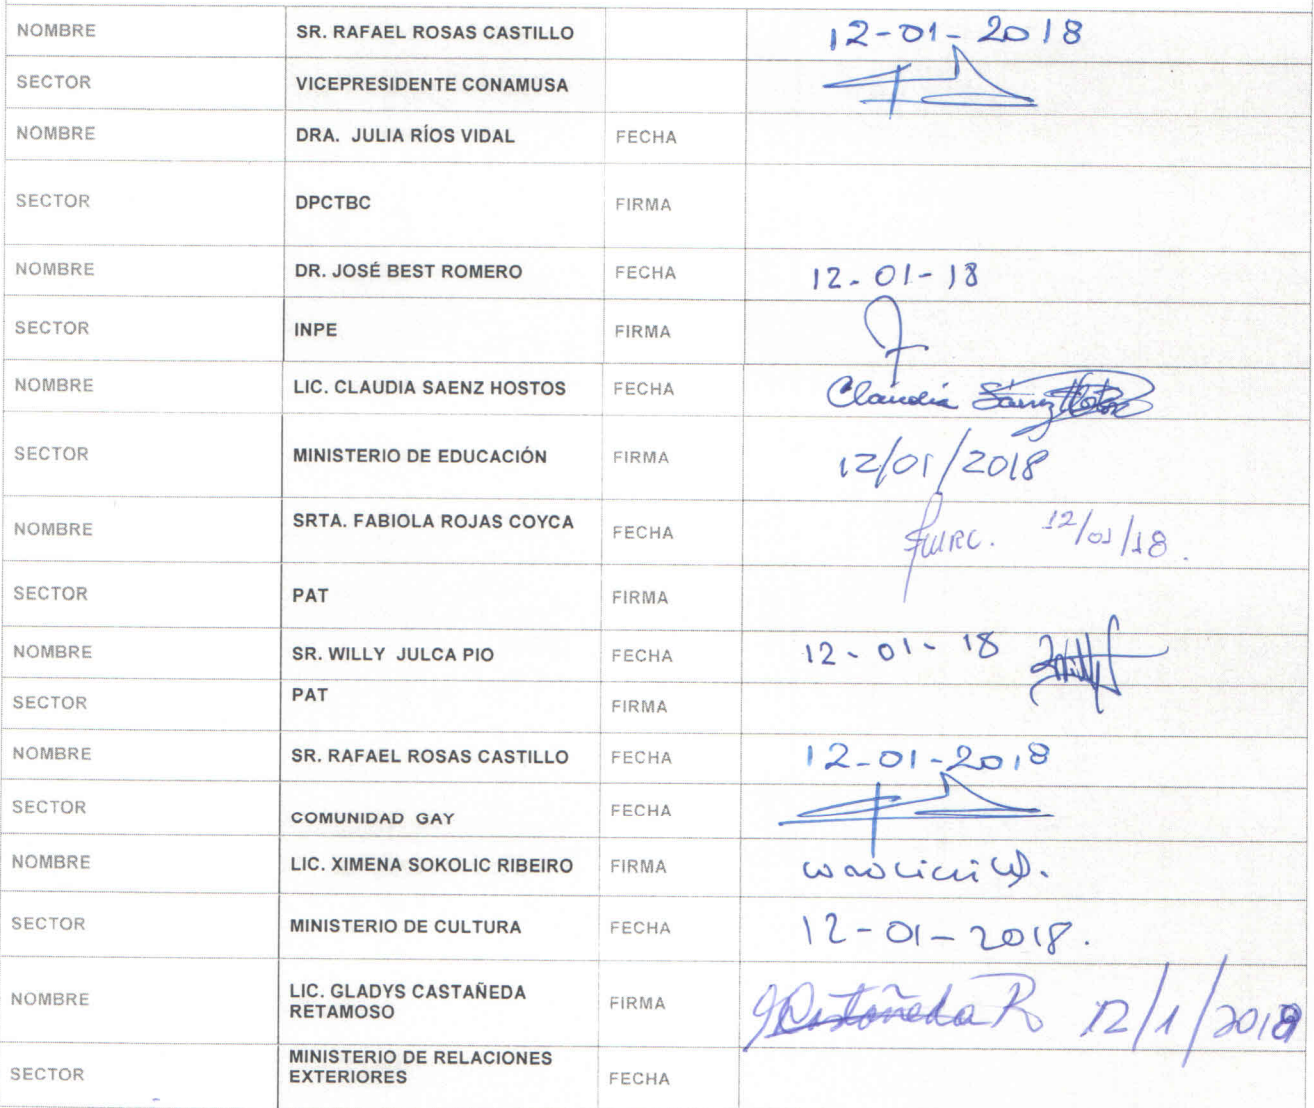 NOMBRE SR. RAFAEL ROSAS CASTILLO 12-01-2018
SECTOR VICEPRESIDENTE CONAMUSA
NOMBRE DRA. JULIA RÍOS VIDAL FECHA
SECTOR DPCTBC FIRMA
NOMBRE DR. JOSÉ BEST ROMERO FECHA 12-01-18
SECTOR INPE FIRMA
NOMBRE LIC. CLAUDIA SAENZ HOSTOS FECHA Claudia Sáenz Hostos
SECTOR MINISTERIO DE EDUCACIÓN FIRMA 12/01/2018
NOMBRE SRTA. FABIOLA ROJAS COYCA FECHA 12/01/18.
SECTOR PAT FIRMA
NOMBRE SR. WILLY JULCA PIO FECHA 12-01-18
SECTOR PAT FIRMA
NOMBRE SR. RAFAEL ROSAS CASTILLO FECHA 12-01-2018
SECTOR COMUNIDAD GAY FECHA
NOMBRE LIC. XIMENA SOKOLIC RIBEIRO FIRMA
SECTOR MINISTERIO DE CULTURA FECHA 12-01-2018.
NOMBRE LIC. GLADYS CASTAÑEDA
RETAMOSO FIRMA GCastañeda R 12/1/2018
SECTOR MINISTERIO DE RELACIONES
EXTERIORES FECHA